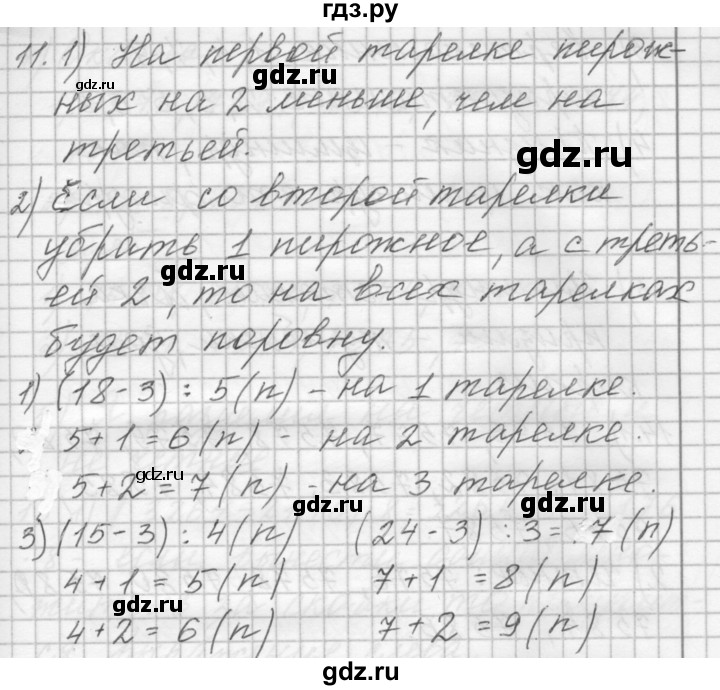 гдз.ру
11. 1) На первой тарелке пирож-
ных на 2 меньше, чем на
третьей.
gdz.ru
2) Если со второй тарелки
убрать 1 пирожное, а с треть-
ей 2, то на всех тарелках
будет поровну.
1) (18-3) : 5 (п) - на 1 тарелке.
5+1=6 (п) - на 2 тарелке.
5+2=7 (п) - на 3 тарелке.
3) (15-3) : 4 (п) (24-3) : 3 = 7 (п)
4+1=5 (п) 7+1 =8 (п)
4+2=6 (п) 7+2=9 (п)
gdz.ru
gdz.ru
gdz.ru
gdz.ru
gdz.ru
gdz.ru
gdz.ru
gdz.ru
gdz.ru
gdz.ru
gdz.ru